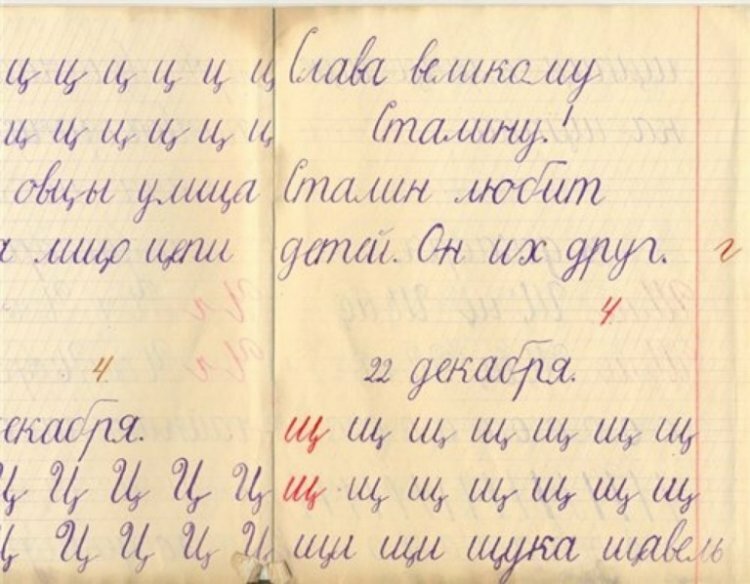 ц ц ц ц ц ц
ц ц ц ц ц ц
овцы улица
лицо цепи
4
декабря.
Ц Ц Ц Ц Ц Ц
Ц Ц Ц Ц Ц Ц
Слава великому
Сталину!
Сталин любит
детей. Он их друг.
г
4
22 декабря.
щ щ щ щ щ щ щ
щ щ щ щ щ щ щ
щи щи щука щавель